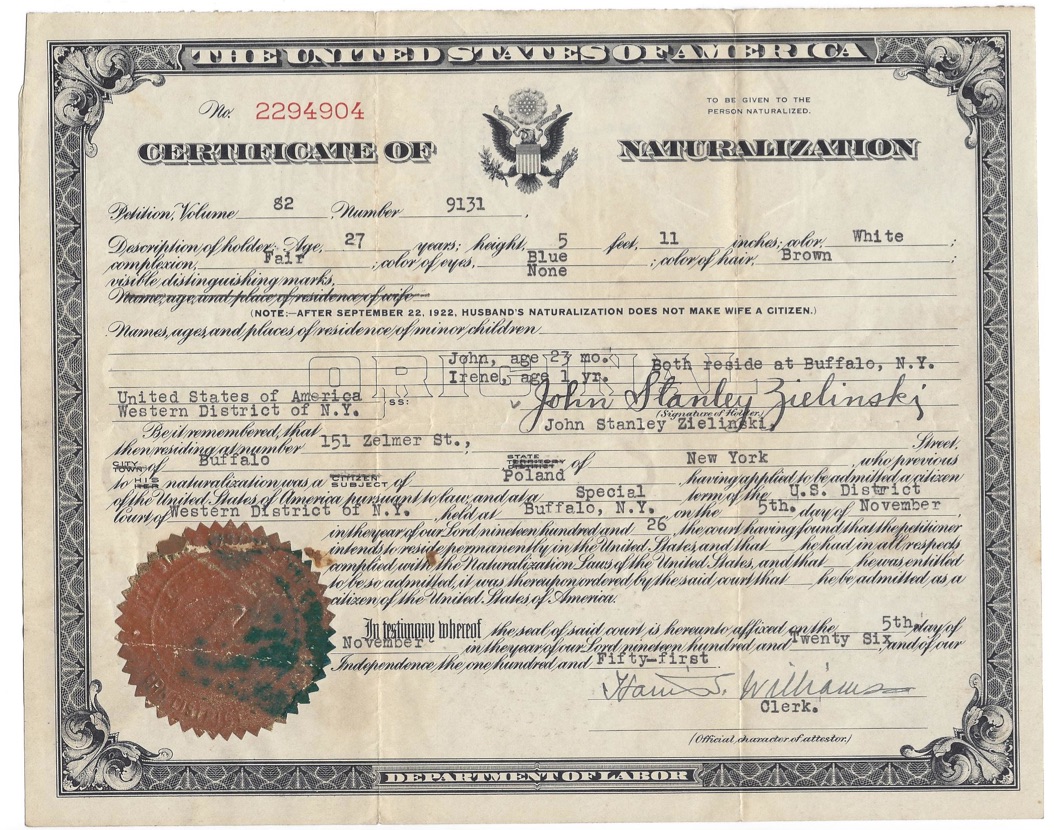 THE UNITED STATES OF AMERICA
No. 2294904
TO BE GIVEN TO THE
PERSON NATURALIZED.
CERTIFICATE OF NATURALIZATION
Petition, Volume 82 Number 9131
Description of holder: Age, 27 years; height, 5 feet, 11 inches; color, White ;
complexion, Fair ; color of eyes, Blue ; color of hair, Brown ;
visible distinguishing marks, None
Name, age, and place of residence of wife
(NOTE:—AFTER SEPTEMBER 22, 1922, HUSBAND'S NATURALIZATION DOES NOT MAKE WIFE A CITIZEN.)
Names, ages, and places, of residence, of minor children
ORIGINAL
John, age 23 mo. Both reside at Buffalo, N.Y.
Irene, age 1 yr.
United States of America
Western District of N.Y. SS:
John Stanley Zielinski
(Signature of Holder.)
Be it remembered, that John Stanley Zielinski,
then residing at number 151 Zelmer St., Street,
CITY TOWN of Buffalo STATE TERRITORY DISTRICT of New York , who previous
to HIS naturalization was a CITIZEN SUBJECT of Poland , having applied to be admitted a citizen
of the United States of America pursuant to law, and at a Special term of the U.S. District
Court of Western District of N.Y. , held at Buffalo, N.Y. , on the 5th. day of November ,
in the year of our Lord nineteen hundred and 26 , the court having found that the petitioner
intends to reside permanently in the United States, and that he had in all respects
complied with the Naturalization Laws of the United States, and that he was entitled
to be so admitted, it was thereupon ordered by the said court that he be admitted as a
citizen of the United States of America.
In testimony whereof the seal of said court is hereunto affixed on the 5th. day of
November in the year of our Lord nineteen hundred and Twenty Six, and of our
Independence the one hundred and Fifty-first
Williams
Clerk.
(Official character of attestor.)
DEPARTMENT OF LABOR